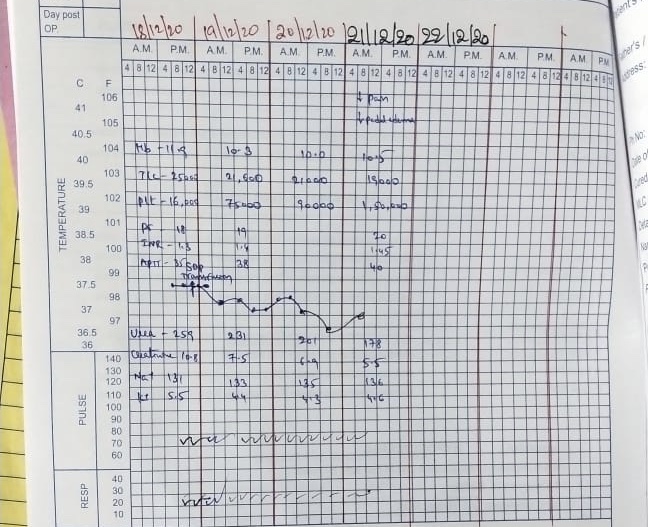 Day post OP.
18/12/20 19/12/20 20/12/20 21/12/20 22/12/20
A.M. P.M. A.M. P.M. A.M. P.M. A.M. P.M. A.M. P.M. A.M. P.M. A.M. P.M.
4 8 12 4 8 12 4 8 12 4 8 12 4 8 12 4 8 12 4 8 12 4 8 12 4 8 12 4 8 12 4 8 12 4 8 12 4 8 12 4 8 12
C F
TEMPERATURE
106 ↓ Pain
41
105 ↓ pedal edema
40.5
104 Hb - 11.9 10.3 10.0 10.5
40
103 TLC - 25000 21,600 21000 19000
39.5
102 Plt - 16,000 75000 90000 1,50,000
39
101 PT - 18 19 20
38.5
100 INR - 1.3 1.4 1.45
38
APTT - 35 38 40
99 SDP Transfusion
37.5
98
37
97
36.5 Urea - 259 231 201 178
36
PULSE
140 Creatinine 10.8 7.5 6.9 5.5
130
120 Na+ 131 133 135 136
110 K+ 5.5 4.4 4.3 4.6
100
90
80
70
60
RESP
40
30
20
10